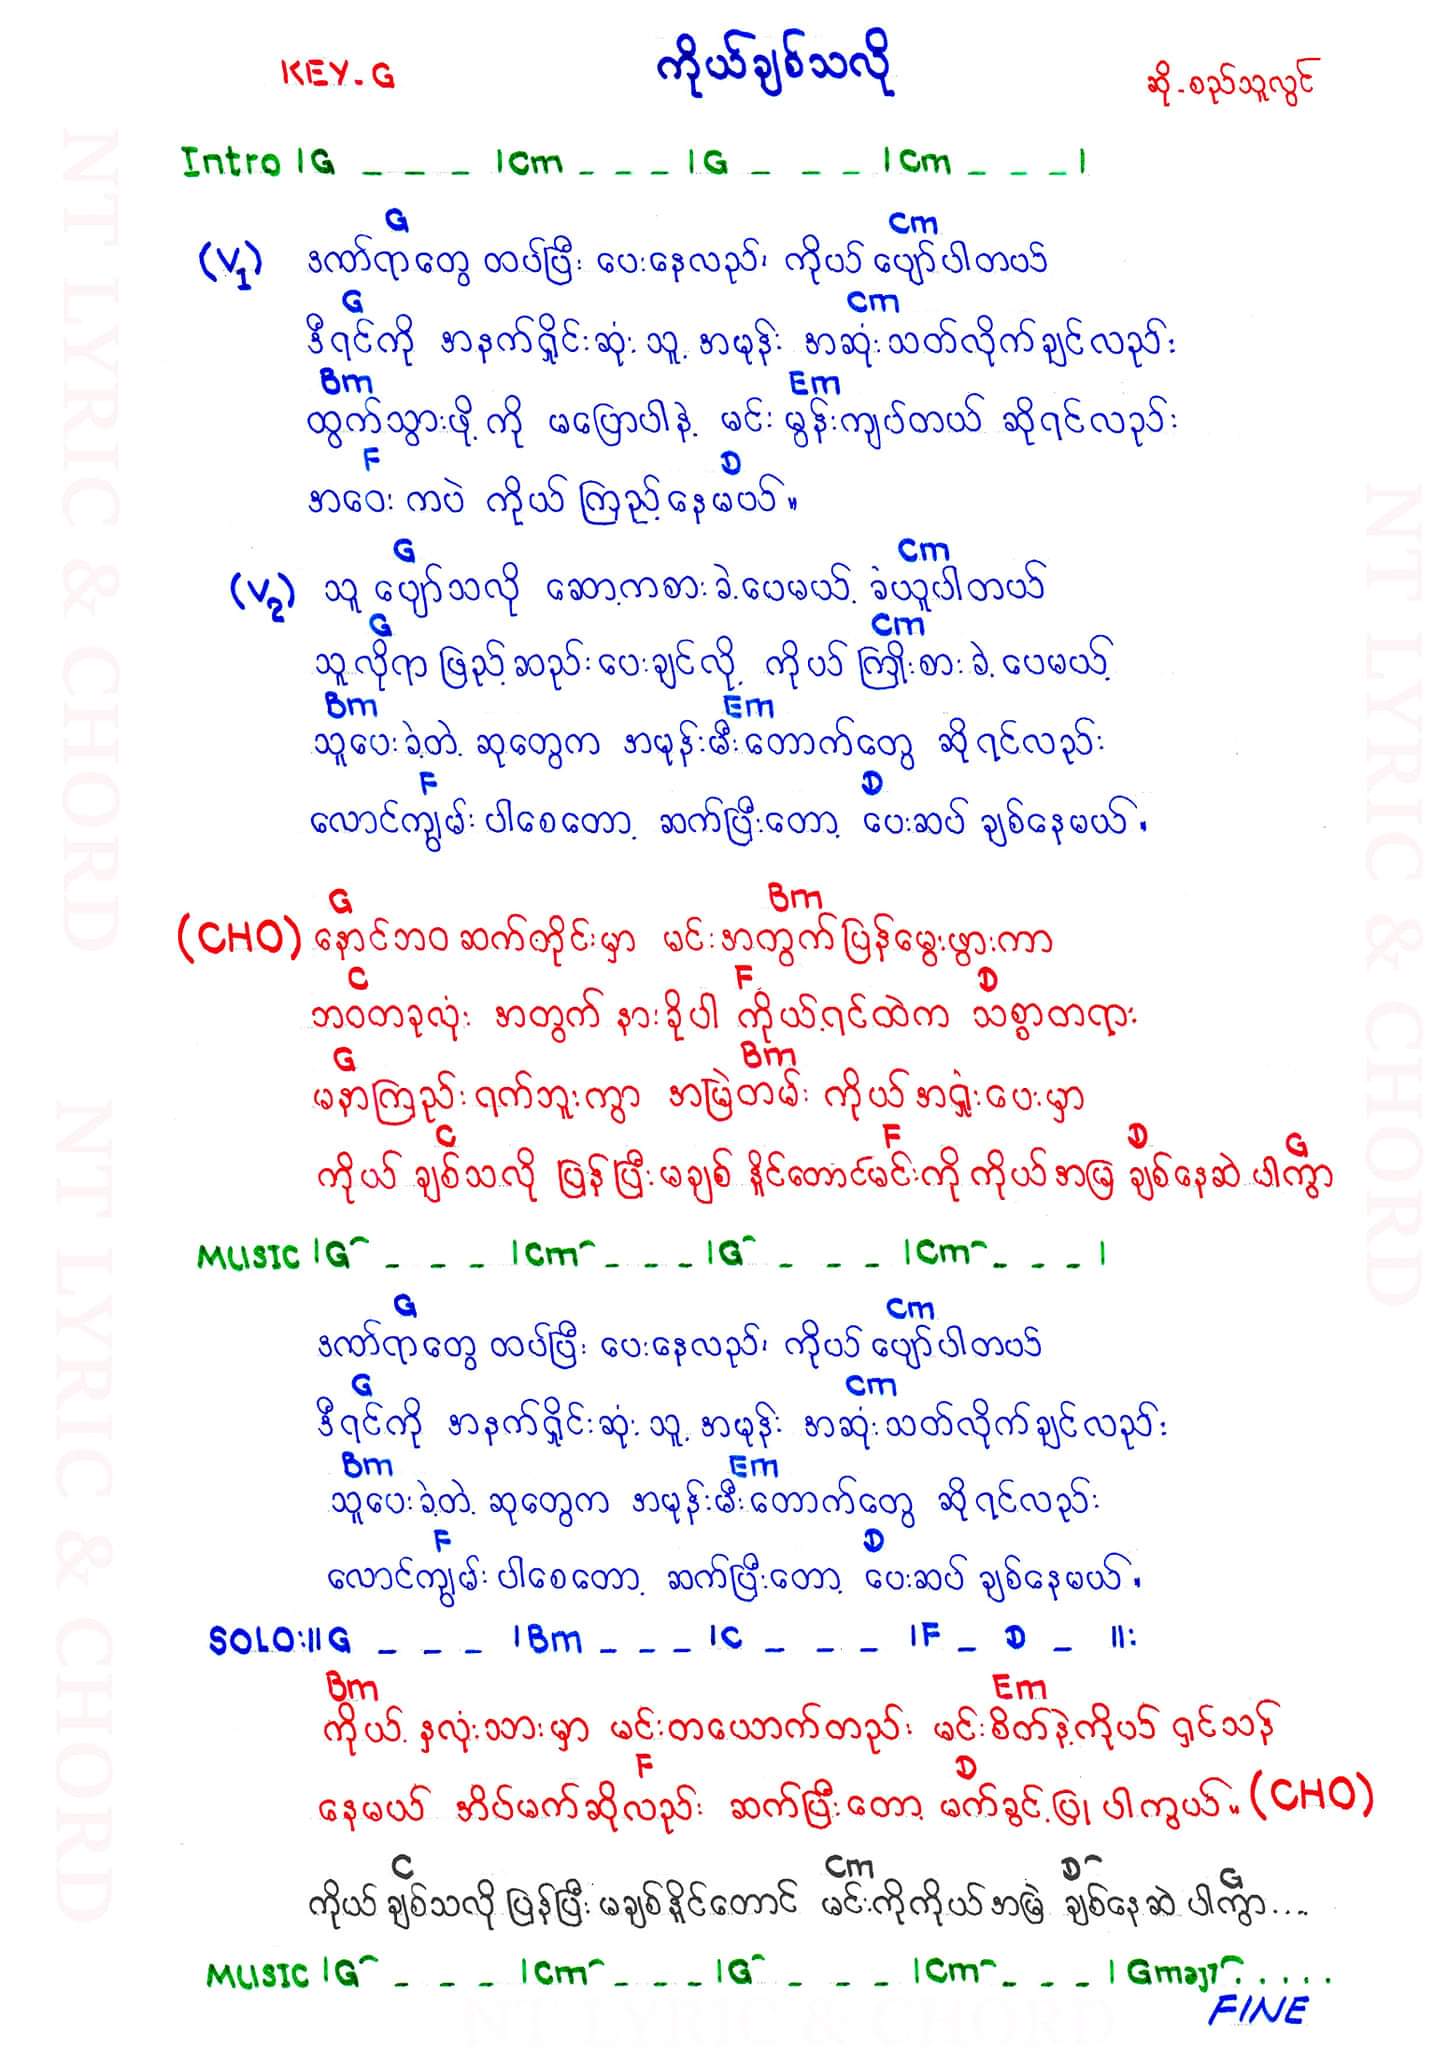 KEY-G
ကိုယ်ချစ်သလို
ဆို-စည်သူလွင်
Intro |G _ _ _ |Cm _ _ _ |G _ _ _ |Cm _ _ _ |
G Cm
(V1) ဒဏ်ရာတွေ ထပ်ပြီး ပေးနေလည်း ကိုယ် ပျော်ပါတယ်
G Cm
ဒီရင်ကို အနက်ရှိုင်းဆုံး သူ့ အမုန်း အဆုံးသတ်လိုက်ချင်လည်း
Bm Em
ထွက်သွားဖို့ ကို မပြောပါနဲ့ မင်း မွန်းကျပ်တယ် ဆိုရင်လည်း
F D
အဝေး ကပဲ ကိုယ် ကြည့်နေမယ်။
G Cm
(V2) သူ ပျော်သလို ဆော့ကစားခဲ့ပေမယ့် ခံယူပါတယ်
G Cm
သူလိုရာ ဖြည့်ဆည်းပေးချင်လို့ ကိုယ် ကြိုးစားခဲ့ပေမယ့်
Bm Em
သူပေးခဲ့တဲ့ ဆုတွေက အမုန်းမီးတောက်တွေ ဆိုရင်လည်း
F D
လောင်ကျွမ်းပါစေတော့ ဆက်ပြီးတော့ ပေးဆပ် ချစ်နေမယ်။
G Bm
(CHO) နောင်ဘဝ ဆက်တိုင်းမှာ မင်းအတွက်ပြန်မွေးဖွားကာ
C F D
ဘဝတခုလုံး အတွက် နားခိုပါ ကိုယ့်ရင်ထဲက သစ္စာတရား
G Bm
မနာကြည်းရက်ဘူးကွာ အမြဲတမ်း ကိုယ်အရှုံးပေးမှာ
C F D G
ကိုယ် ချစ်သလို ပြန်ပြီးမချစ် နိူင်တောင်မင်းကို ကိုယ်အမြဲ ချစ်နေဆဲ ပါကွာ
MUSIC |G^ _ _ _ |Cm^ _ _ _ |G^ _ _ _ |Cm^ _ _ _ |
G Cm
ဒဏ်ရာတွေ ထပ်ပြီး ပေးနေလည်း ကိုယ် ပျော်ပါတယ်
G Cm
ဒီရင်ကို အနက်ရှိုင်းဆုံး သူ့ အမုန်း အဆုံးသတ်လိုက်ချင်လည်း
Bm Em
သူပေးခဲ့တဲ့ ဆုတွေက အမုန်းမီးတောက်တွေ ဆိုရင်လည်း
F D
လောင်ကျွမ်းပါစေတော့ ဆက်ပြီးတော့ ပေးဆပ် ချစ်နေမယ်။
SOLO:||G _ _ _ |Bm _ _ _ |C _ _ _ |F _ D _ ||:
Bm Em
ကိုယ့် နှလုံးသားမှာ မင်းတယောက်တည်း မင်းစိတ်နဲ့ကိုယ် ရှင်သန်
F D
နေမယ် အိပ်မက်ဆိုလည်း ဆက်ပြီးတော့ မက်ခွင့်ပြု ပါကွယ်။ (CHO)
C Cm D^ G
ကိုယ် ချစ်သလို ပြန်ပြီးမချစ်နိူင်တောင် မင်းကိုကိုယ်အမြဲ ချစ်နေဆဲ ပါကွာ....
MUSIC |G^ _ _ _ |Cm^ _ _ _ |G^ _ _ _ |Cm^ _ _ _ | Gmaj7^.....
FINE
NT LYRIC & CHORD
NT LYRIC & CHORD
NT LYRIC & CHORD
NT LYRIC & CHORD